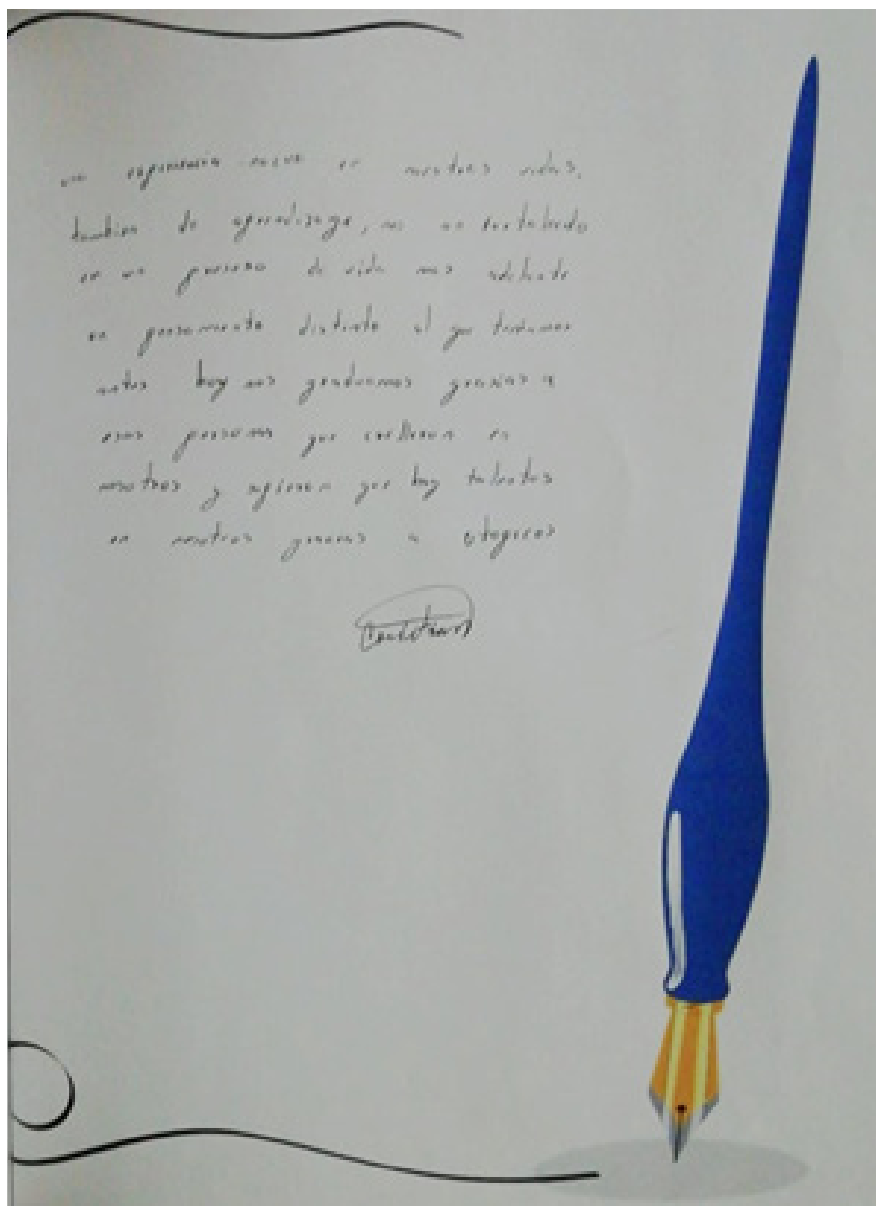 una experiencia nueva en nuestras vidas,
tambien de aprendizage, nos an fortalecido
en un proseso de vida mas adelante
un pensamiento distinto al que teniamos
antes hoy nos graduamos grasias a
esas personas que en
nosotros y supieron que hay talentos
en nosotros grasias a